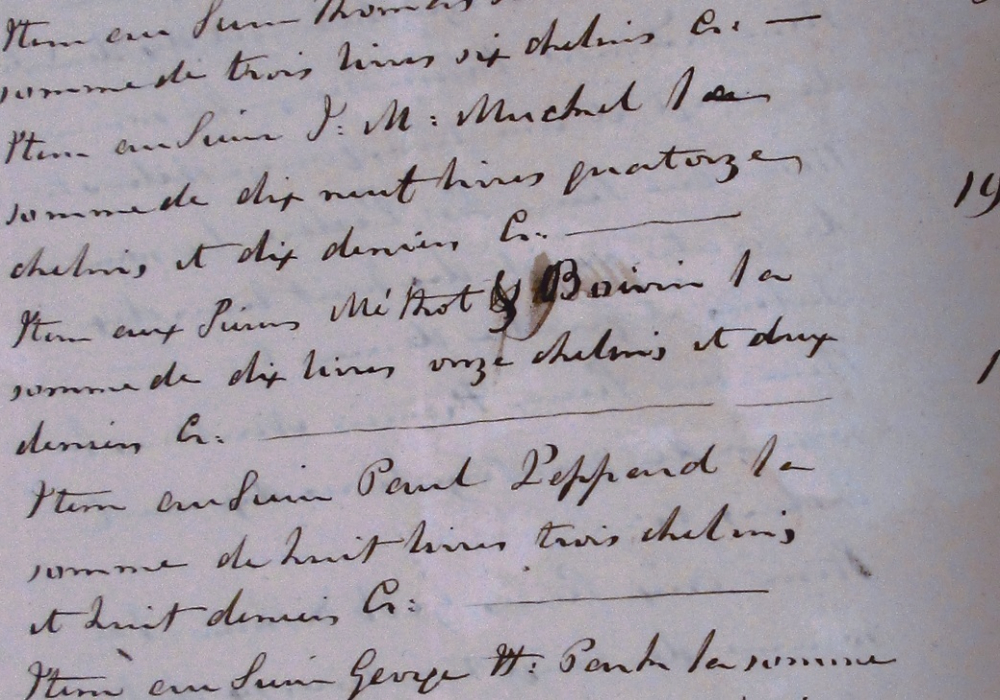 Item au Sieur Thomas
somme de trois livres six chelins Cr: —
Item au Sieur J: M: Muckel la
somme de dix neuf livres quatorze
chelins et dix deniers Cr: —
19
Item aux Sieurs Méthot & Boivin la
somme de dix livres onze chelins et deux
deniers Cr: —
Item au Sieur Paul Peppard la
somme de huit livres trois chelins
et huit deniers Cr: —
Item au Sieur George H: Parke la somme